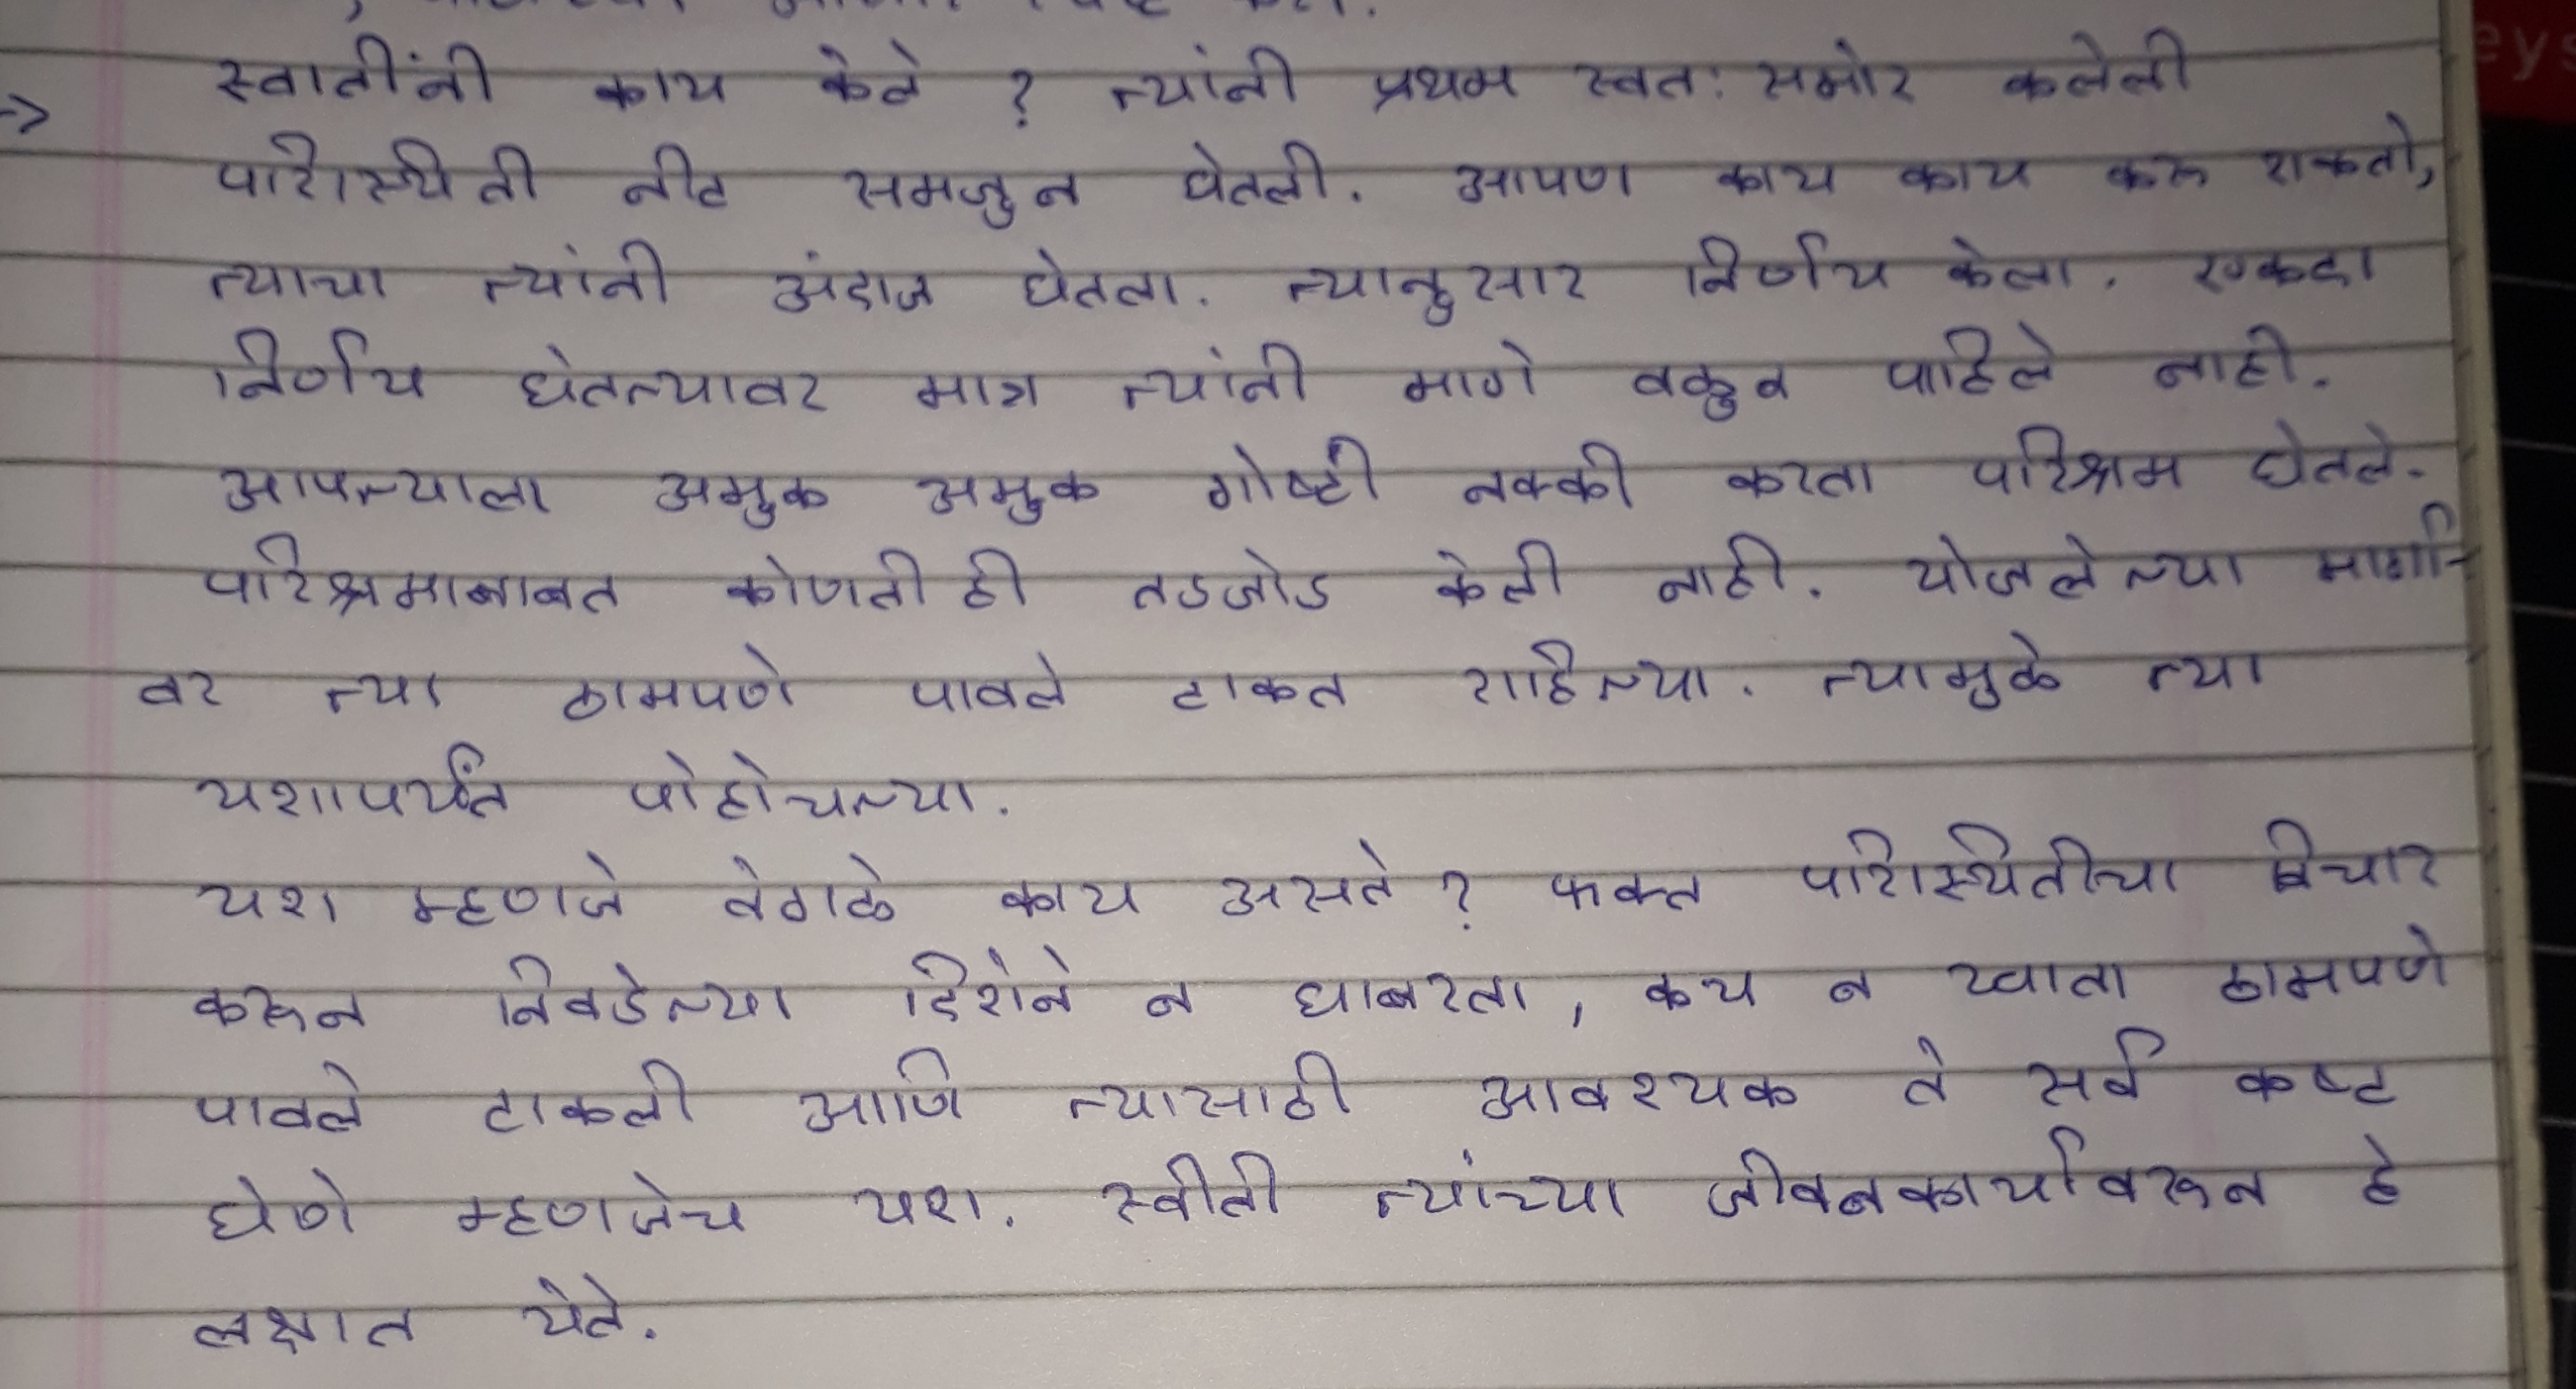 स्वातींनी काय केले ? त्यांनी प्रथम स्वत: समोर कलेली
परिस्थिती नीट समजुन घेतली. आपण काय काय करू शकतो,
त्याचा त्यांनी अंदाज घेतला. त्यानुसार निर्णय केला. एकदा
निर्णय घेतल्यावर मात्र त्यांनी मागे वळुन पाहिले नाही.
आपल्याला अमुक अमुक गोष्टी नक्की करता परिश्रम घेतले.
परिश्रमाबाबत कोणतीही तडजोड केली नाही. योजलेल्या मार्गा-
वर त्या ठामपणे पावले टाकत राहिल्या. त्यामुळे त्या
यशापर्यंत पोहोचल्या.
यश म्हणजे वेगळे काय असते ? फक्त परिस्थितीचा विचार
करून निवडेल्या दिशेने न घाबरता, कच न खाता ठामपणे
पावले टाकली आणि त्यासाठी आवश्यक ते सर्व कष्ट
घेणे म्हणजेच यश. स्वीती त्यांच्या जीवनकार्यावरून हे
लक्षात येते.